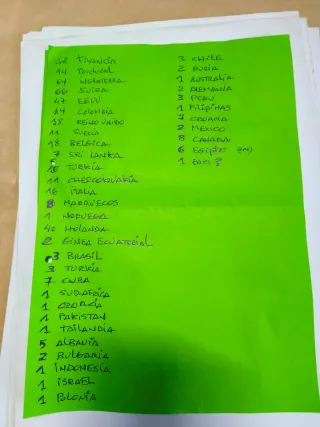 FRANCIA
94 PORTUGAL
64 INGLATERRA
66 SUIZA
47 EEUU
64 COLOMBIA
18 REINO UNIDO
11 SUECIA
18 BELGICA
7 SRI LANKA
TURKIA
11 CHECOSLOVAKIA
16 ITALIA
8 MARRUECOS
1 NORUEGA
40 HOLANDA
2 GINEA ECUATORIAL
3 BRASIL
3 TURKIA
7 CUBA
1 SUDAFRICA
1 CROACIA
1 PAKISTAN
1 TAILANDIA
5 ALBANIA
2 BULGARIA
1 INDONESIA
1 ISRAEL
1 POLONIA
3 CHILE
2 RUSIA
1 AUSTRALIA
2 ALEMANIA
3 PERU
1 FILIPINAS
7 CROACIA
2 MEXICO
8 CANADA
6 EGIPTO
1